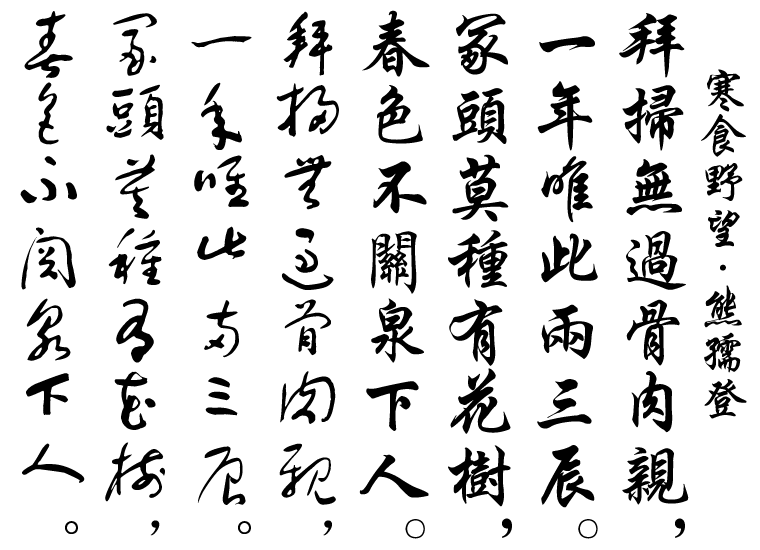 寒食野望·熊孺登
拜掃無過骨肉親，
一年唯此兩三辰。
冢頭莫種有花樹，
春色不關泉下人。
拜掃無過骨肉親，
一年唯此兩三辰。
冢頭莫種有花樹，
春色不關泉下人。